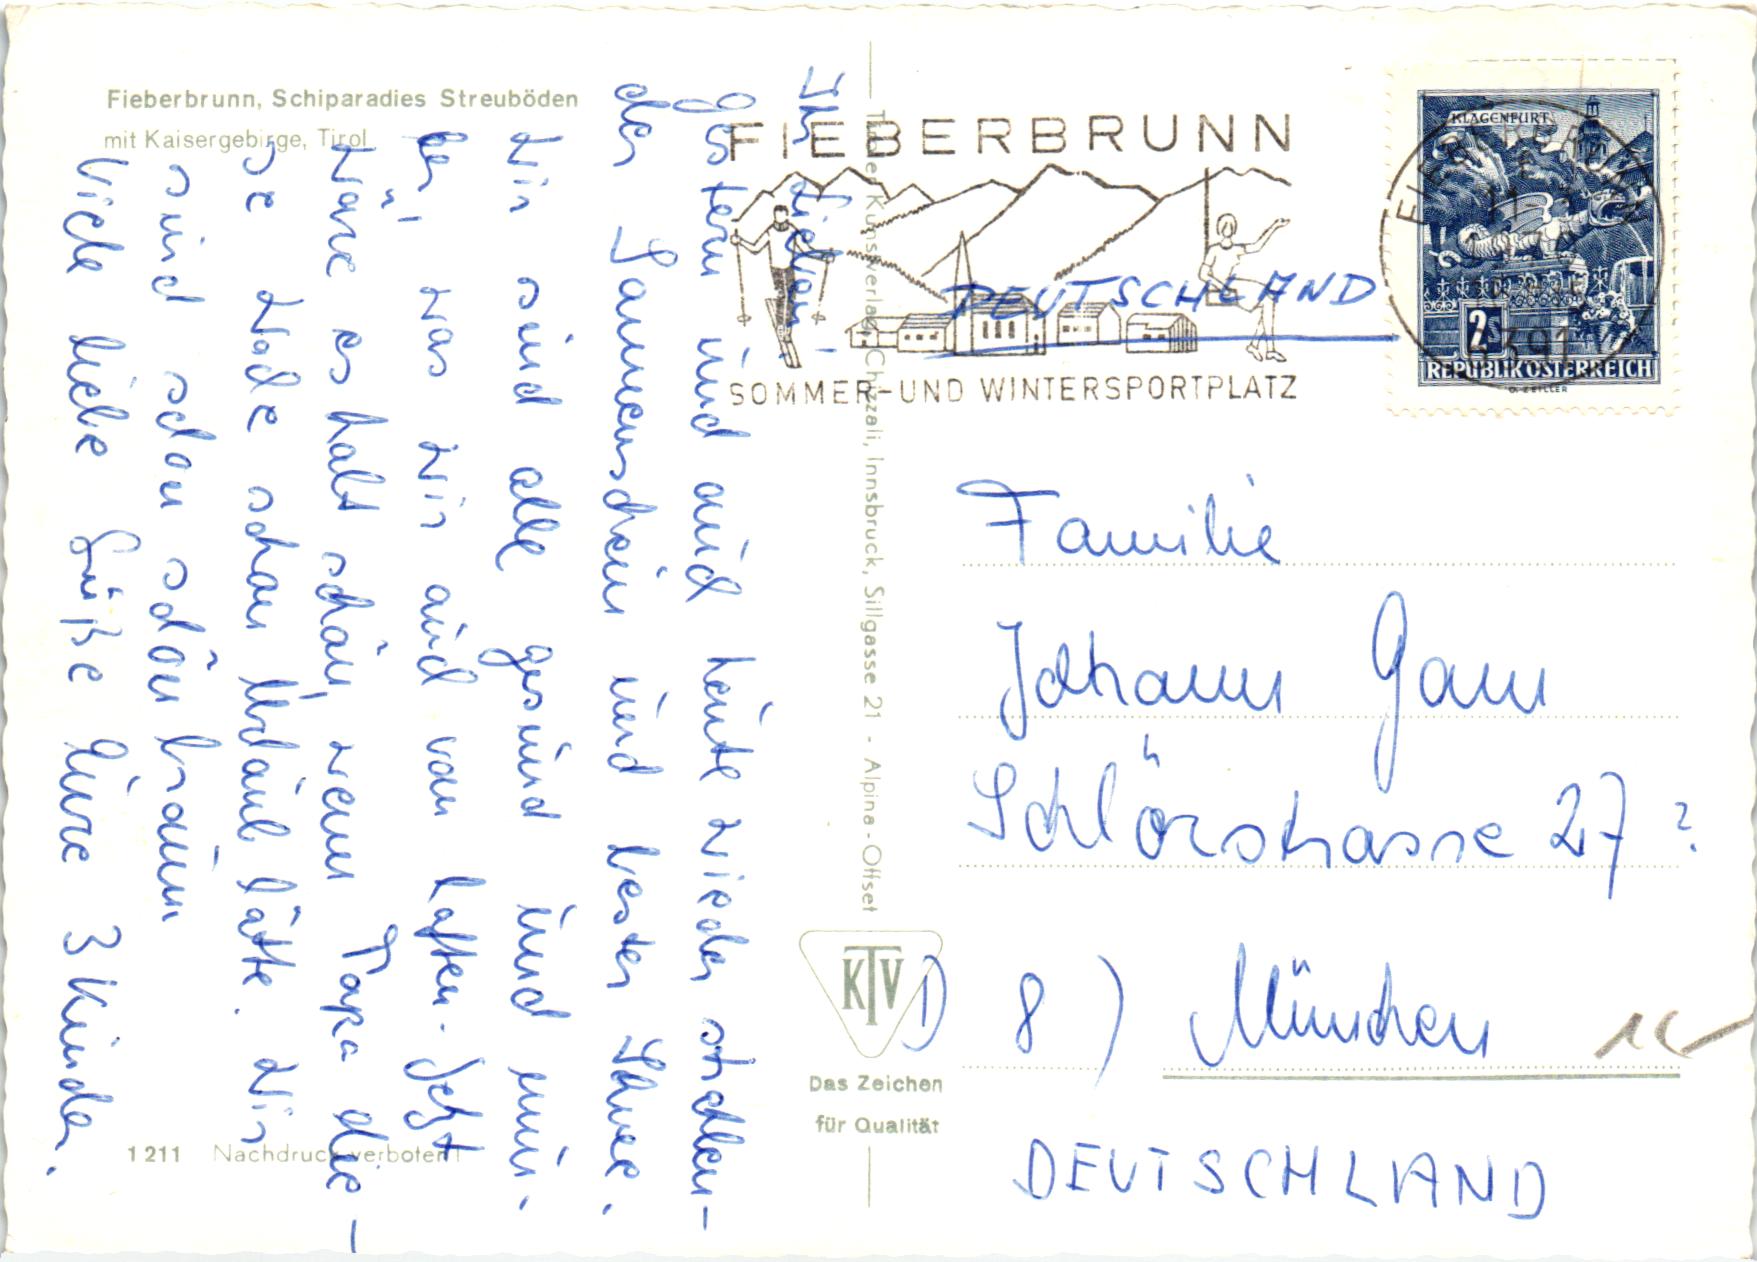 Fieberbrunn, Schiparadies Streuböden
mit Kaisergebirge, Tirol
Ihr Lieben!
Gestern und auch heute wieder strahlen-
der Sonnenschein und bester Schnee.
Wir sind alle gesund und mun-
ter, was wir auch von hoffen. Jetzt
wäre es halt schön, wenn Papa die-
se Woche schon Urlaub hätte. Wir
sind schon schön braun
Viele liebe Grüße Eure 3 Kinder.
1211 Nachdruck verboten!
Tiroler Kunstverlag Chizzali, Innsbruck, Sillgasse 21 - Alpina-Offset
KTV
Das Zeichen
für Qualität
FIEBERBRUNN
SOMMER-UND WINTERSPORTPLATZ
DEUTSCHLAND
KLAGENFURT
FIEBERBRUNN
6391
2S
REPUBLIK ÖSTERREICH
O. ZEILLER
Familie
Johann Gam
Schlörstrasse 27 ?
D 8) München
DEUTSCHLAND